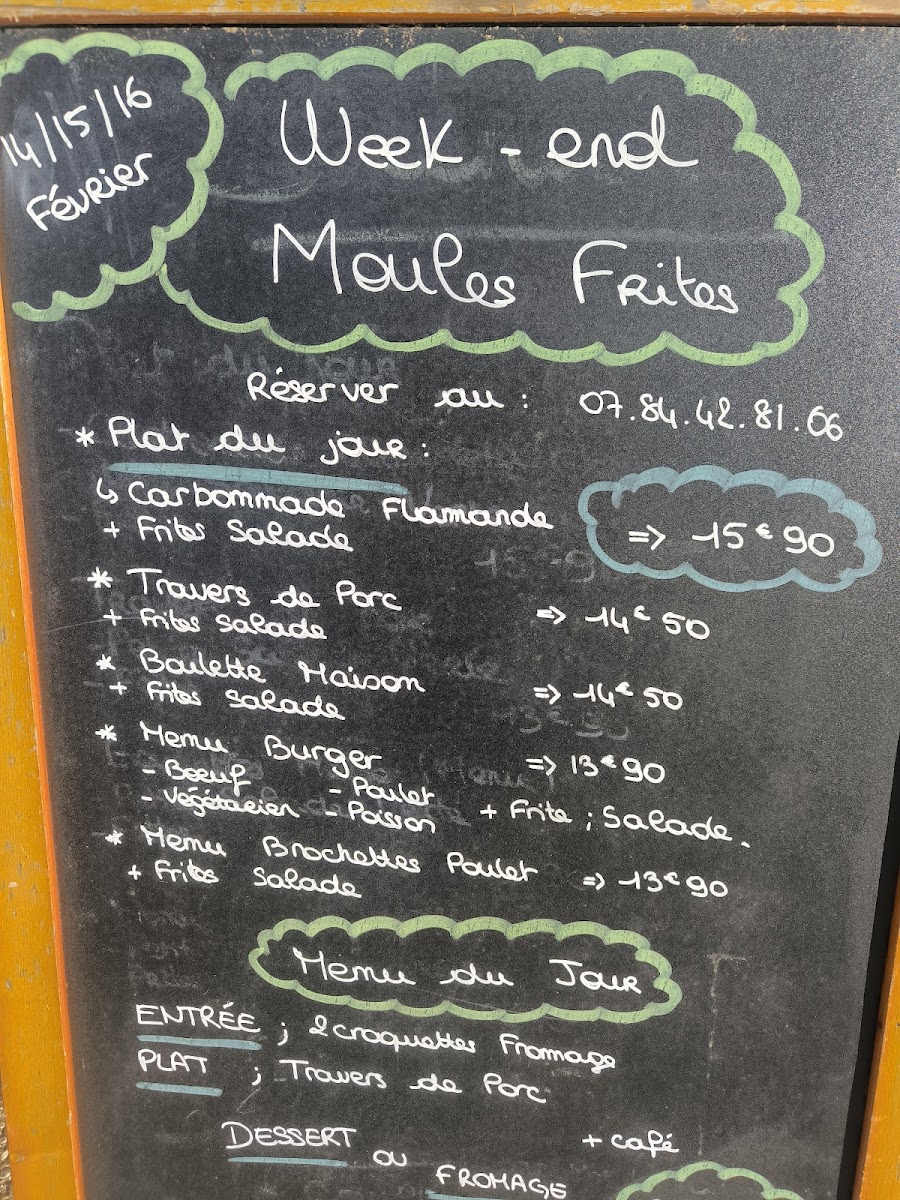 14/15/16
Février
Week-end
Moules Frites
Réserver au : 07.84.42.81.06
* Plat du jour :
↳ Carbommade Flamande => 15€90
+ Frites Salade
* Travers de Porc => 14€50
+ Frites Salade
* Boulette Maison => 14€50
+ Frites Salade
* Menu Burger => 13€90
- Boeuf - Poulet
- Végétarien - Poisson + Frite ; Salade.
* Menu Brochettes Poulet => 13€90
+ Frites Salade
Menu du Jour
ENTRÉE ; 2 croquettes Fromage
PLAT ; Travers de Porc
DESSERT + café
ou
FROMAGE